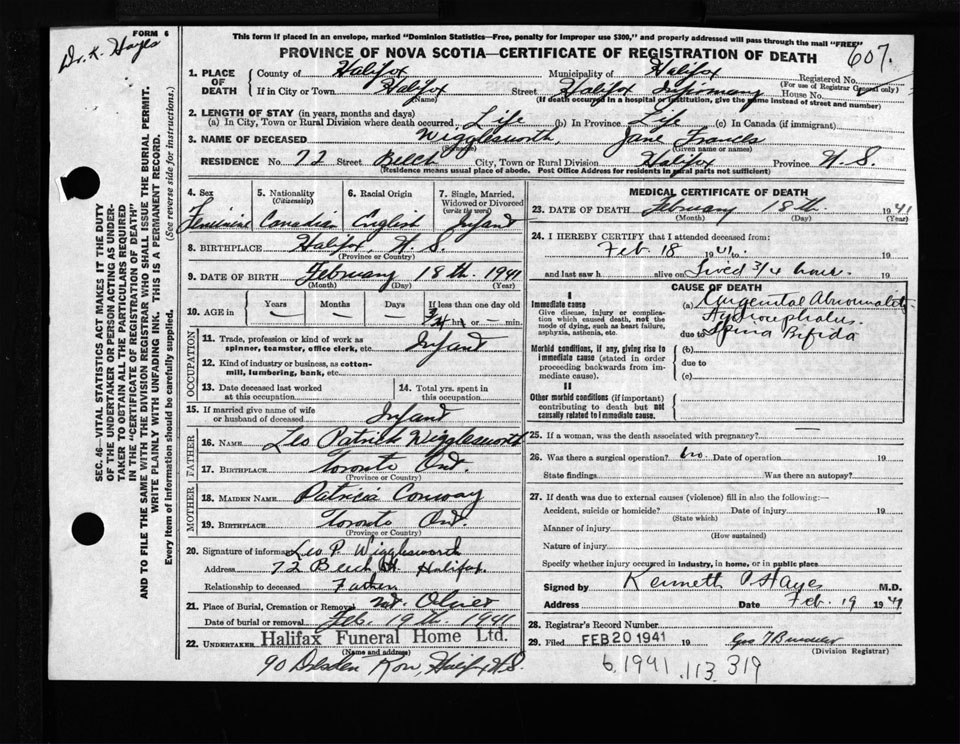 FORM 6
Dr. K. Hayes
This form if placed in an envelope, marked "Dominion Statistics—Free, penalty for improper use $300," and properly addressed will pass through the mail "FREE"
PROVINCE OF NOVA SCOTIA—CERTIFICATE OF REGISTRATION OF DEATH
607.
1. PLACE OF DEATH
County of Halifax Municipality of Halifax Registered No.
(For use of Registrar General only)
If in City or Town Halifax Street Halifax Infirmary House No.
(Name) (If death occurred in a hospital or institution, give the name instead of street and number)
2. LENGTH OF STAY (in years, months and days)
(a) In City, Town or Rural Division where death occurred Life (b) In Province Life (c) In Canada (if immigrant)
3. NAME OF DECEASED Wigglesworth, Jane Francis
(Surname) (Given name or names)
RESIDENCE No. 72 Street Beech City, Town or Rural Division Halifax Province N.S.
(Residence means usual place of abode. Post Office Address for residents in rural parts not sufficient)
4. Sex Feminine
5. Nationality (Citizenship) Canadian
6. Racial Origin English
7. Single, Married, Widowed or Divorced (write the word) Infant
8. BIRTHPLACE Halifax N.S.
(Province or Country)
9. DATE OF BIRTH February 18th. 1941
(Month) (Day) (Year)
10. AGE in Years Months Days If less than one day old
3/4 hrs. or — min.
OCCUPATION
11. Trade, profession or kind of work as spinner, teamster, office clerk, etc. Infant
12. Kind of industry or business, as cotton-mill, lumbering, bank, etc.
13. Date deceased last worked at this occupation
14. Total yrs. spent in this occupation
15. If married give name of wife or husband of deceased Infant
FATHER
16. NAME Leo Patrick Wigglesworth
17. BIRTHPLACE Toronto Ont.
(Province or Country)
MOTHER
18. MAIDEN NAME Patricia Conway
19. BIRTHPLACE Toronto Ont.
(Province or Country)
20. Signature of informant Leo P. Wigglesworth
Address 72 Beech St Halifax.
Relationship to deceased Father
21. Place of Burial, Cremation or Removal Mt. Olivet
Date of burial or removal Feb. 19th. 1941
22. UNDERTAKER Halifax Funeral Home Ltd.
(Name and address)
90 Row, Halifax N.S.
MEDICAL CERTIFICATE OF DEATH
23. DATE OF DEATH February 18th. 1941
(Month) (Day) (Year)
24. I HEREBY CERTIFY that I attended deceased from:
Feb. 18 1941 to 19
and last saw h alive on Lived 3/4 hour. 19
CAUSE OF DEATH
I
Immediate cause
Give disease, injury or complication which caused death, not the mode of dying, such as heart failure, asphyxia, asthenia, etc.
(a) Congenital Abnormality
Hydrocephalus.
due to Spina Bifida
Morbid conditions, if any, giving rise to immediate cause (stated in order proceeding backwards from immediate cause).
(b)
due to
(c)
II
Other morbid conditions (if important) contributing to death but not causally related to immediate cause.
25. If a woman, was the death associated with pregnancy? —
26. Was there a surgical operation? No. Date of operation 19
State findings Was there an autopsy?
27. If death was due to external causes (violence) fill in also the following:—
Accident, suicide or homicide? Date of injury 19
(State which)
Manner of injury
(How sustained)
Nature of injury
Specify whether injury occurred in industry, in home, or in public place
Signed by Kenneth P. Hayes M.D.
Address Date Feb. 19 1941
28. Registrar's Record Number
29. Filed FEB 20 1941 19
(Division Registrar)
6, 1941 .113 319
SEC. 46—VITAL STATISTICS ACT MAKES IT THE DUTY
OF THE UNDERTAKER OR PERSON ACTING AS UNDER-
TAKER TO OBTAIN ALL THE PARTICULARS REQUIRED
IN THE "CERTIFICATE OF REGISTRATION OF DEATH"
AND TO FILE THE SAME WITH THE DIVISION REGISTRAR WHO SHALL ISSUE THE BURIAL PERMIT.
WRITE PLAINLY WITH UNFADING INK. THIS IS A PERMANENT RECORD.
Every item of Information should be carefully supplied. (See reverse side for instructions.)